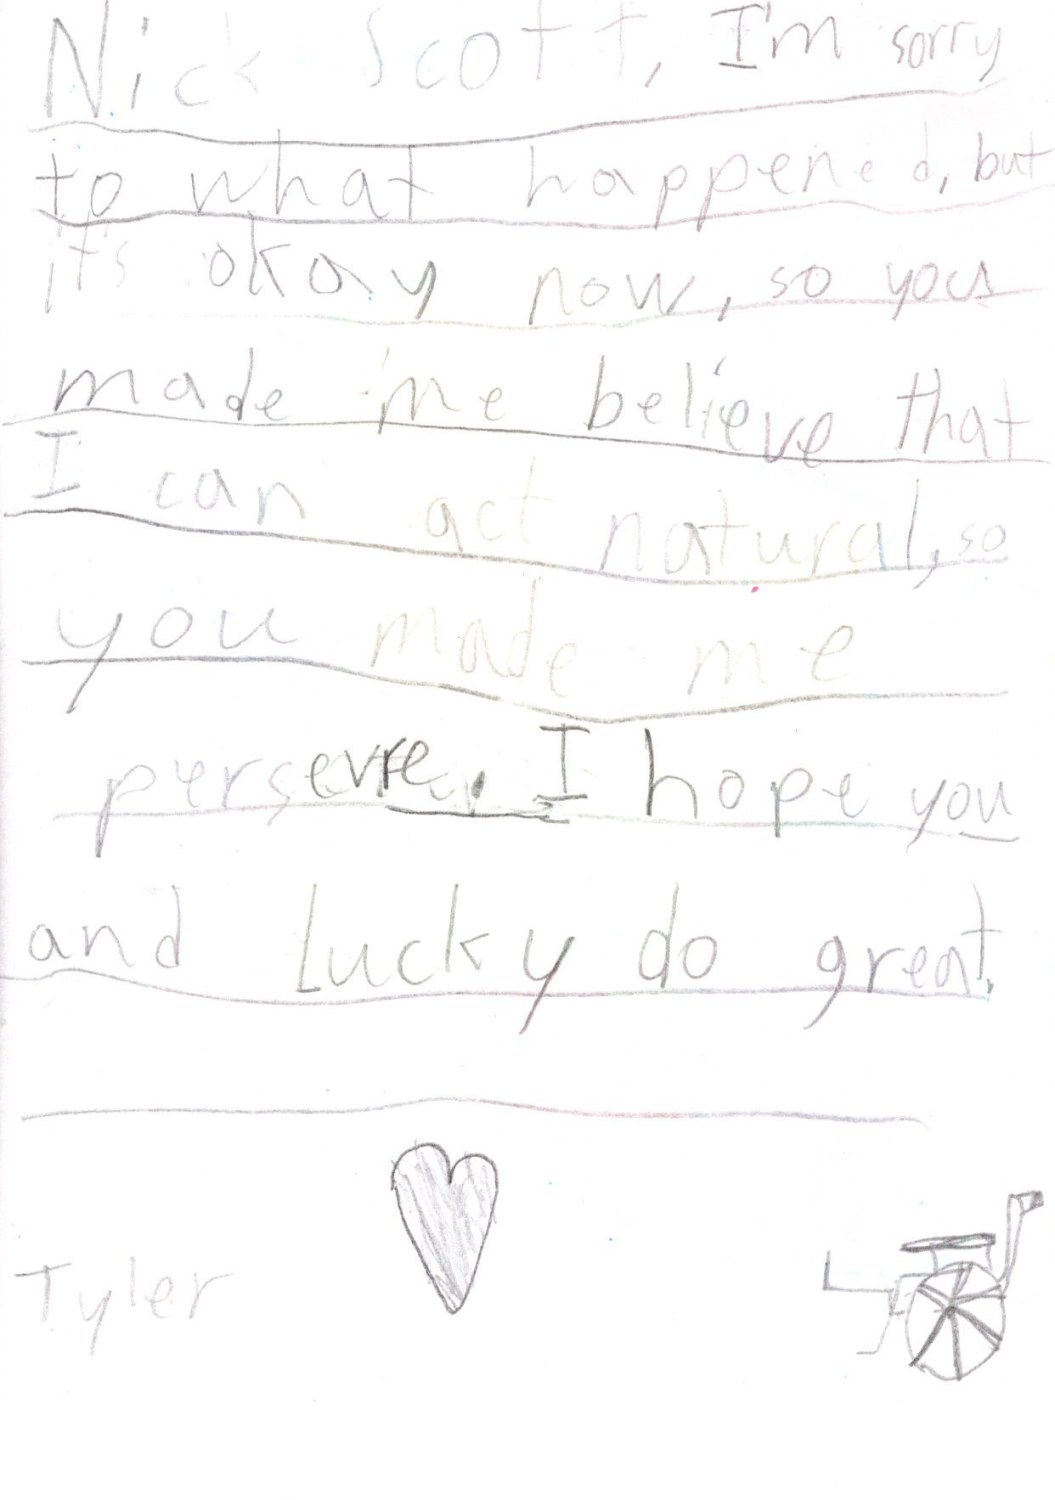 Nick Scott, I'm sorry
to what happened, but
it's okay now, so you
made me believe that
I can act natural, so
you made me
persevre. I hope you
and Lucky do great.
Tyler